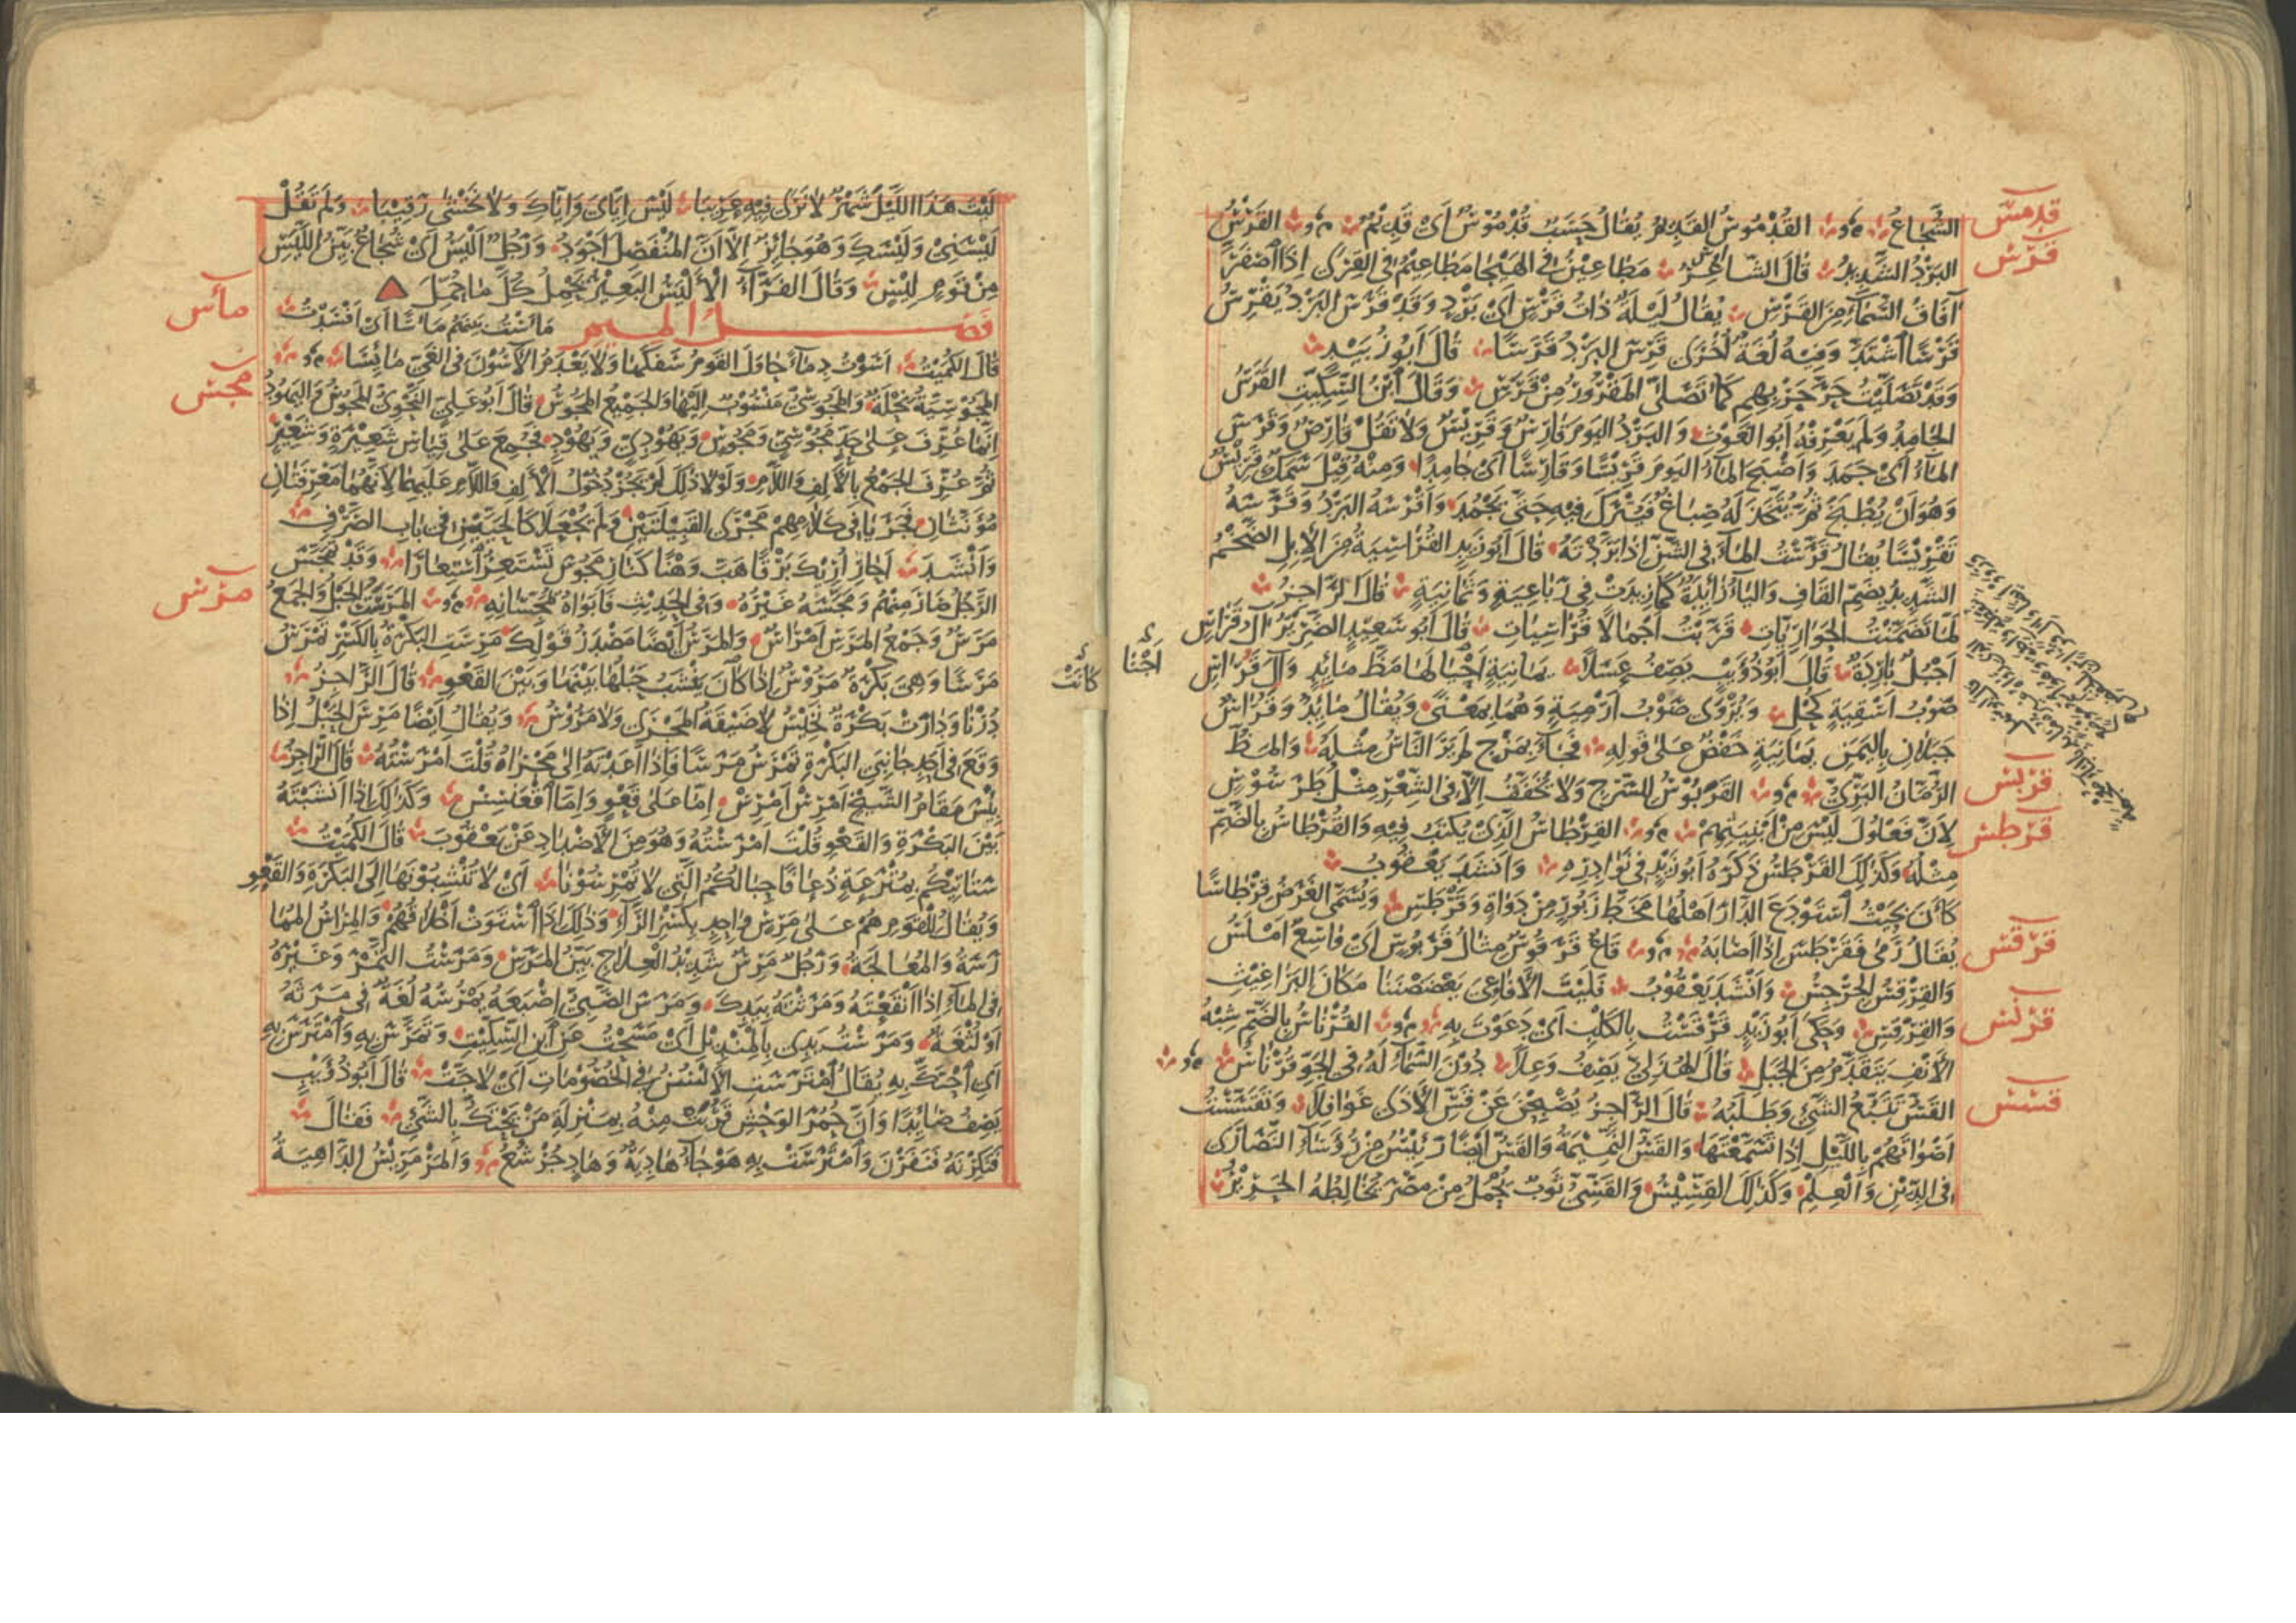 قدمس
الشُّجَاعُ القُدْمُوسُ القَدِيمُ يُقَالُ حَسَبٌ قُدْمُوسٌ أَيْ قَدِيمٌ القَرْسُ
قرس
البَرْدُ الشَّدِيدُ قَالَ الشَّاعِرُ مَطَاعِينُ في الهَيْجَا مَطَاعِيمُ في القِرَى إِذَا اصْفَرَّ
آفَاقُ السَّمَاءِ مِنَ القَرْسِ يُقَالُ لَيْلَةٌ ذَاتُ قَرْسٍ أَيْ بَرْدٍ وَقَدْ قَرَسَ البَرْدُ يَقْرِسُ
قَرْسًا اشْتَدَّ وَفِيهِ لُغَةٌ أُخْرَى قَرِسَ البَرْدُ قَرَسًا قَالَ أَبُو زُبَيْدٍ
وَقَدْ تَصَلَّيْتُ حَرَّ حَرْبِهِمِ كَمَا تَصَلَّى المَقْرُورُ مِنْ قَرَسِ وَقَالَ ابْنُ السِّكِّيتِ القَرَسُ
الجَامِدُ وَلَمْ يَعْرِفْهُ أَبُو الغَوْثِ وَالبَرْدُ اليَوْمَ قَارِسٌ وَقَرِيسٌ وَلَا تَقُلْ قَارِصٌ وَقَرَسَ
المَاءُ أَيْ جَمَدَ وَأَصْبَحَ المَاءُ اليَوْمَ قَرِيسًا وَقَارِسًا أَيْ جَامِدًا وَمِنْهُ قِيلَ سَمَكٌ قَرِيسٌ
وَهُوَ أَنْ يُطْبَخَ ثُمَّ يُتَّخَذَ لَهُ صِبَاغٌ فَيُتْرَكَ فِيهِ حَتَّى يَجْمُدَ وَأَقْرَسَهُ البَرْدُ وَقَرَّسَهُ
تَقْرِيسًا يُقَالُ قَرَّسْتُ المَاءَ في الشَّنِّ إِذَا بَرَّدْتَهُ قَالَ أَبُو زَيْدٍ القُرَاسِيَةُ مِنَ الإِبِلِ الضَّخْمُ
الشَّدِيدُ بِضَمِّ القَافِ وَاليَاءُ زَائِدَةٌ كَمَا زِيدَتْ في رَبَاعِيَةٍ وَثَمَانِيَةٍ قَالَ الرَّاجِزُ
لَمَّا تَضَمَّنْتُ الحَوَارِيَّاتِ قَرَّبْتُ أَجْمَالًا قُرَاسِيَاتِ قَالَ أَبُو سَعِيدٍ الضَّرِيرُ آلُ قَرَاسٍ
أَجْبُلٌ بَارِدَةٌ قَالَ أَبُو ذُؤَيْبٍ يَصِفُ عَسَلًا يَمَانِيَةٍ أَحْيَا لَهَا مَظَّ مَائِدٍ وَآلَ قَرَاسٍ
صَوْبُ أَسْقِيَةٍ كُحْلِ وَيُرْوَى صَوْبُ أَرْمِيَةٍ وَهُمَا بِمَعْنًى وَيُقَالُ مَائِدٌ وَقَرَاسٌ
جَبَلَانِ بِاليَمَنِ يَمَانِيَةٍ خَفْضٌ عَلَى قَوْلِهِ فَجَاءَ بِمَزْجٍ لَمْ يَرَ النَّاسُ مِثْلَهُ وَالمَظُّ
قربس
الرُّمَّانُ البَرِّيُّ القَرَبُوسُ لِلسَّرْجِ وَلَا يُخَفَّفُ إِلَّا في الشِّعْرِ مِثْلُ طَرَسُوسَ
قرطس
لِأَنَّ فَعْلُولَ لَيْسَ مِنْ أَبْنِيَتِهِمْ القِرْطَاسُ الَّذِي يُكْتَبُ فِيهِ وَالقُرْطَاسُ بِالضَّمِّ
مِثْلُهُ وَكَذَلِكَ القَرْطَسُ ذَكَرَهُ أَبُو زَيْدٍ في نَوَادِرِهِ وَأَنْشَدَ يَعْقُوبُ
كَأَنَّ بِحَيْثُ اسْتَوْدَعَ الدَّارَ أَهْلُهَا مَخَطَّ زَبُورٍ مِنْ دَوَاةٍ وَقَرْطَسِ وَيُسَمَّى الغَرَضُ قِرْطَاسًا
قرقس
يُقَالُ رَمَى فَقَرْطَسَ إِذَا أَصَابَهُ قَاعٌ قَرَقُوسٌ مِثَالُ قَرَبُوسٍ أَيْ وَاسِعٌ أَمْلَسُ
وَالقِرْقِسُ الجِرْجِسُ وَأَنْشَدَ يَعْقُوبُ فَلَيْتَ الأَفَاعِيَ يَعْضَضْنَنَا مَكَانَ البَرَاغِيثِ
قرنس
وَالقِرْقِسِ وَحَكَى أَبُو زَيْدٍ قَرْقَسْتُ بِالكَلْبِ أَيْ دَعَوْتُ بِهِ القُرْنَاسُ بِالضَّمِّ شِبْهُ
الأَنْفِ يَتَقَدَّمُ مِنَ الجَبَلِ قَالَ الهُذَلِيُّ يَصِفُ وَعِلًا دُونَ السَّمَاءِ لَهُ في الجَوِّ قُرْنَاسُ
قسس
القَسُّ تَتَبُّعُ الشَّيْءِ وَطَلَبُهُ قَالَ الرَّاجِزُ يُصْبِحْنَ عَنْ قَسِّ الأَذَى غَوَافِلَا وَتَقَسَّسْتُ
أَصْوَاتَهُمْ بِاللَّيْلِ إِذَا تَسَمَّعْتَهَا وَالقَسُّ النَّمِيمَةُ وَالقَسُّ أَيْضًا رَئِيسٌ مِنْ رُؤَسَاءِ النَّصَارَى
في الدِّينِ وَالعِلْمِ وَكَذَلِكَ القِسِّيسُ وَالقَسِّيُّ ثَوْبٌ يُحْمَلُ مِنْ مِصْرَ يُخَالِطُهُ الحَرِيرُ
أَجْنَا
كَانَتْ
لَيْتَ هَذَا اللَّيْلَ شَهْرٌ لَا نَرَى فِيهِ عَرِيبَا لَيْسَ إِيَّايَ وَإِيَّاكَ وَلَا نَخْشَى رَقِيبَا وَلَمْ تَقُلْ
لَيْسَنِي وَلَيْسَكَ وَهُوَ جَائِزٌ إِلَّا أَنَّ المُنْفَصِلَ أَجْوَدُ وَرَجُلٌ أَلْيَسُ أَيْ شُجَاعٌ بَيِّنُ اللَّيَسِ
مِنْ قَوْمٍ لِيسٍ وَقَالَ الفَرَّاءُ الأَلْيَسُ البَعِيرُ يَحْمِلُ كُلَّ مَا حُمِّلَ
مأس
فصل الميم مَأَسْتُ بَيْنَهُمْ مَأْسًا أَيْ أَفْسَدْتُ
قَالَ الكُمَيْتُ أَسَوْتُ دِمَاءً حَاوَلَ القَوْمُ سَفْكَهَا وَلَا يَعْدَمُ الآسُونَ في الغَيِّ مَائِسَا
مجس
المَجُوسِيَّةُ نِحْلَةٌ وَالمَجُوسِيُّ مَنْسُوبٌ إِلَيْهَا وَالجَمِيعُ المَجُوسُ قَالَ أَبُو عَلِيٍّ النَّحْوِيُّ المَجُوسُ وَاليَهُودُ
إِنَّمَا عُرِّفَ عَلَى حَدِّ مَجُوسِيٍّ وَمَجُوسٍ وَيَهُودِيٍّ وَيَهُودٍ فَجُمِعَ عَلَى قِيَاسِ شَعِيرَةٍ وَشَعِيرٍ
ثُمَّ عُرِّفَ الجَمْعُ بِالأَلِفِ وَاللَّامِ وَلَوْلَا ذَلِكَ لَمْ يَجُزْ دُخُولُ الأَلِفِ وَاللَّامِ عَلَيْهِمَا لِأَنَّهُمَا مَعْرِفَتَانِ
مُؤَنَّثَانِ فَجَرَيَا في كَلَامِهِمْ مَجْرَى القَبِيلَتَيْنِ وَلَمْ يُجْعَلَا كَالحَيَّيْنِ في بَابِ الصَّرْفِ
وَأَنْشَدَ أَحَارِ أُرِيكَ بَرْقًا هَبَّ وَهْنًا كَنَارِ مَجُوسَ تَسْتَعِرُ اسْتِعَارَا وَقَدْ تَمَجَّسَ
مرس
الرَّجُلُ صَارَ مِنْهُمْ وَمَجَّسَهُ غَيْرُهُ وَفي الحَدِيثِ فَأَبَوَاهُ يُمَجِّسَانِهِ المَرَسَةُ الحَبْلُ وَالجَمْعُ
مَرَسٌ وَجَمْعُ المَرَسِ أَمْرَاسٌ وَالمَرَسُ أَيْضًا مَصْدَرُ قَوْلِكَ مَرِسَتِ البَكْرَةُ بِالكَسْرِ تَمْرَسُ
مَرَسًا وَهِيَ بَكْرَةٌ مَرُوسٌ إِذَا كَانَ يَنْشَبُ حَبْلُهَا بَيْنَهَا وَبَيْنَ القَعْوِ قَالَ الرَّاجِزُ
دُرْنَا وَدَارَتْ بَكْرَةٌ نَخِيسُ لَا ضَيْقَةُ المَجْرَى وَلَا مَرُوسُ وَيُقَالُ أَيْضًا مَرِسَ الحَبْلُ إِذَا
وَقَعَ في أَحَدِ جَانِبَيِ البَكْرَةِ يَمْرَسُ مَرَسًا فَإِذَا أَعَدْتَهُ إِلَى مَجْرَاهُ قُلْتَ أَمْرَسْتُهُ قَالَ الرَّاجِزُ
بِئْسَ مَقَامُ الشَّيْخِ أَمْرِسْ أَمْرِسْ إِمَّا عَلَى قَعْوٍ وَإِمَّا اقْعَنْسِسْ وَكَذَلِكَ إِذَا أَنْشَبْتَهُ
بَيْنَ البَكْرَةِ وَالقَعْوِ قُلْتَ أَمْرَسْتُهُ وَهُوَ مِنَ الأَضْدَادِ عَنْ يَعْقُوبَ قَالَ الكُمَيْتُ
سَتَأْتِيكُمْ بِمُتْرَعَةٍ ذُعَافًا حِبَالُكُمُ الَّتِي لَا تُمْرِسُونَا أَيْ لَا تُنْشِبُونَهَا إِلَى البَكْرَةِ وَالقَعْوِ
وَيُقَالُ لِلْقَوْمِ هُمْ عَلَى مَرِسٍ وَاحِدٍ بِكَسْرِ الرَّاءِ وَذَلِكَ إِذَا اسْتَوَتْ أَخْلَاقُهُمْ وَالمِرَاسُ المُمَا
رَسَةُ وَالمُعَالَجَةُ وَرَجُلٌ مَرِسٌ شَدِيدُ العِلَاجِ بَيِّنُ المَرَسِ وَمَرَسْتُ التَّمْرَ وَغَيْرَهُ
في المَاءِ إِذَا أَنْقَعْتَهُ وَمَرَثْتَهُ بِيَدِكَ وَمَرَسَ الصَّبِيُّ إِصْبَعَهُ يَمْرُسُهُ لُغَةٌ في مَرَثَهُ
أَوْ لُثْغَةٌ وَمَرَسْتُ يَدِي بِالمِنْدِيلِ أَيْ مَسَحْتُ عَنِ ابْنِ السِّكِّيتِ وَتَمَرَّسَ بِهِ وَامْتَرَسَ بِهِ
أَيِ احْتَكَّ بِهِ يُقَالُ امْتَرَسَتِ الأَلْسُنُ في الخُصُومَاتِ أَيْ لَاجَّتْ قَالَ أَبُو ذُؤَيْبٍ
يَصِفُ صَائِدًا وَأَنَّ حُمُرَ الوَحْشِ قَرُبَتْ مِنْهُ بِمَنْزِلَةِ مَنْ يَحْتَكُّ بِالشَّيْءِ فَقَالَ
فَنَكِرْنَهُ فَنَفَرْنَ وَامْتَرَسَتْ بِهِ هَوْجَاءُ هَادِيَةٌ وَهَادٍ جُرْشُعُ وَالمَرْمَرِيسُ الدَّاهِيَةُ